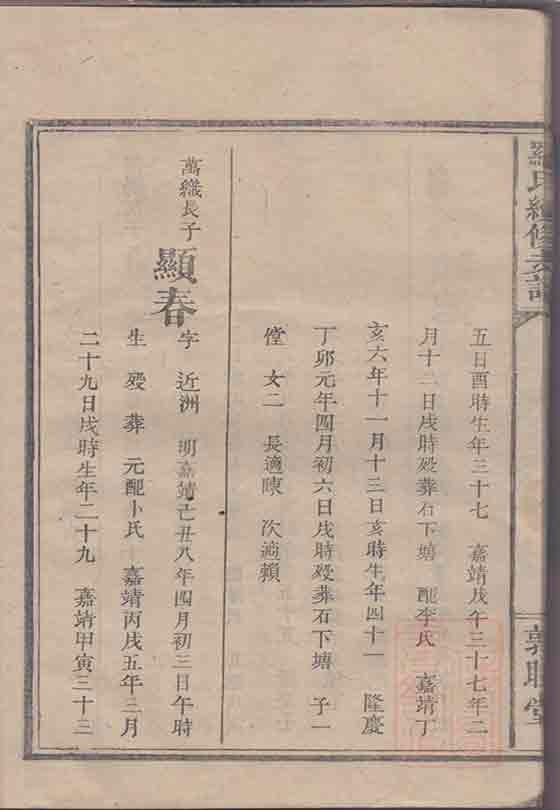 羅氏續修支譜
敦睦堂
五日酉時生年三十七 嘉靖戊午三十七年二
月十二日戌時歿葬石下塘 配李氏 嘉靖丁
亥六年十一月十三日亥時生年四十一 隆慶
丁卯元年四月初六日戌時歿葬石下塘 子一
女二 長適陳 次適賴
萬織長子
顯春
字 近洲 明嘉靖己丑八年四月初三日午時
生 歿 葬 元配卜氏 嘉靖丙戌五年三月
二十九日戌時生年二十九 嘉靖甲寅三十三